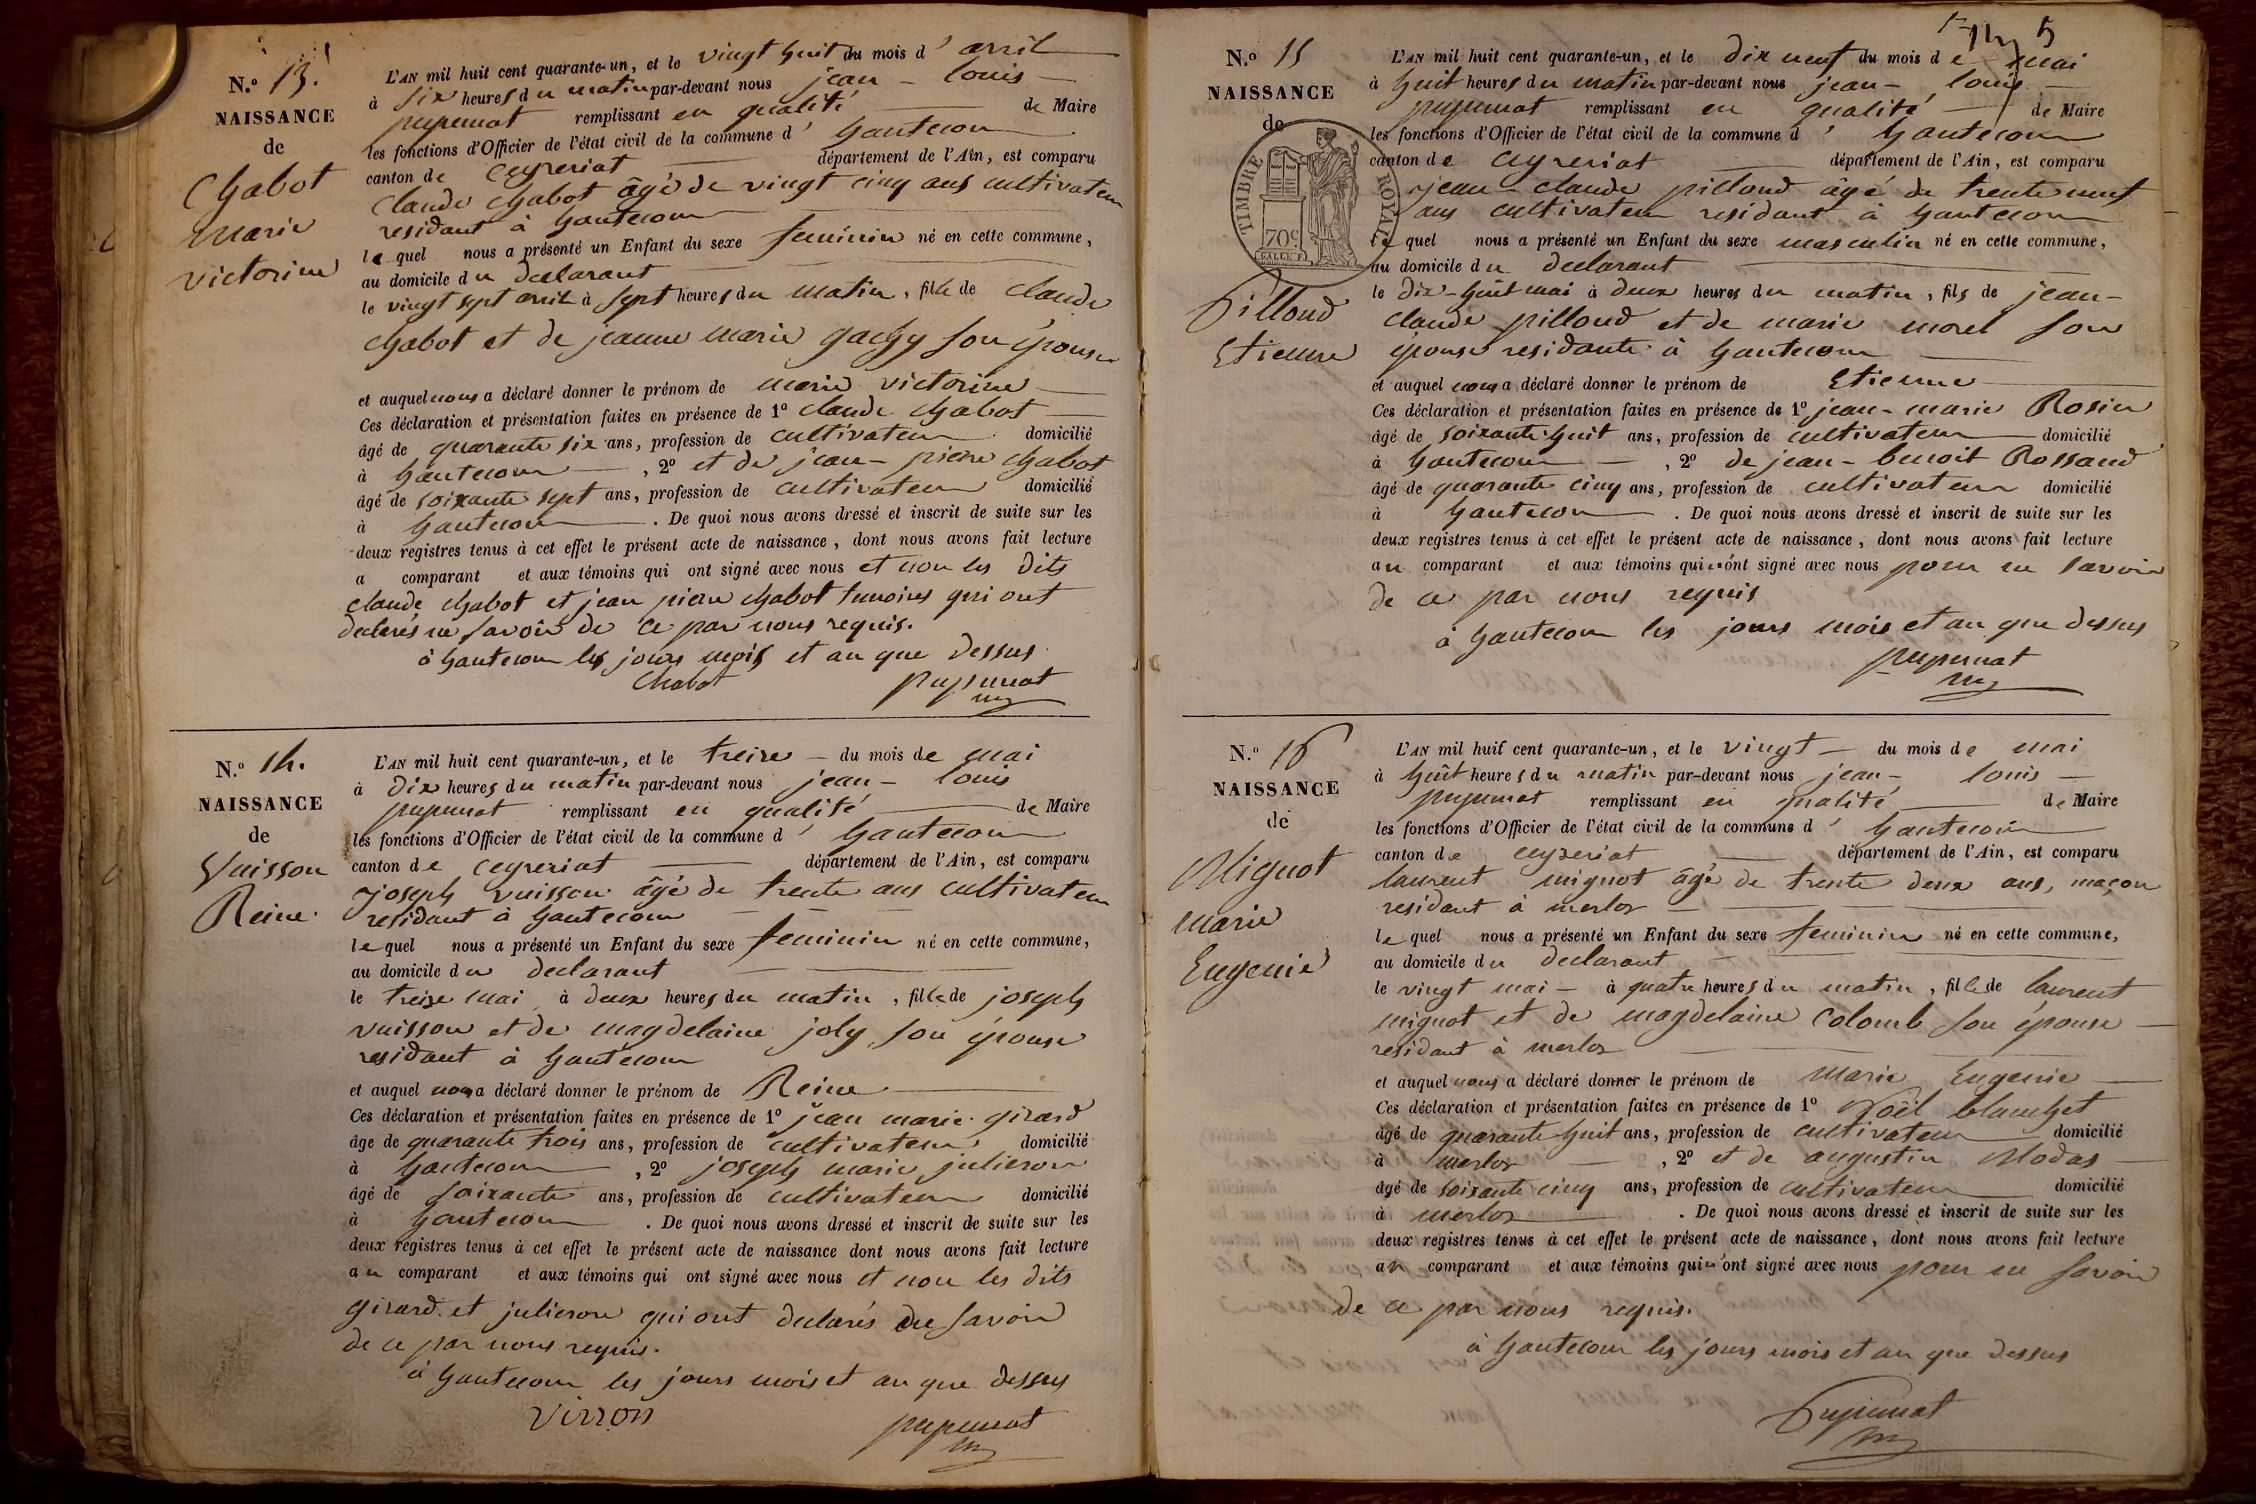 N.º 13.
NAISSANCE
de
Chabot
marie
victorine
L'AN mil huit cent quarante-un, et le vingt huit du mois d'avril
à six heures du matin par-devant nous jean-louis
pupunat remplissant en qualité de Maire
les fonctions d'Officier de l'état civil de la commune d'hautecour
canton de ceyzeriat département de l'Ain, est comparu
Claude Chabot âgé de vingt cinq ans cultivateur
residant à hautecour
lequel nous a présenté un Enfant du sexe feminin né en cette commune,
au domicile du declarant
le vingt sept avril à sept heures du matin, fille de claude
chabot et de jeanne marie gachy son épouse
et auquel nous a déclaré donner le prénom de marie victorine
Ces déclaration et présentation faites en présence de 1º claude chabot
âgé de quarante six ans, profession de cultivateur domicilié
à hautecour, 2º et de jean-pierre chabot
âgé de soixante sept ans, profession de cultivateur domicilié
à hautecour. De quoi nous avons dressé et inscrit de suite sur les
deux registres tenus à cet effet le présent acte de naissance, dont nous avons fait lecture
a comparant et aux témoins qui ont signé avec nous et non les dits
claude chabot et jean pierre chabot temoins qui ont
declarés ne savoir de ce par nous requis.
à hautecour les jours mois et an que dessus
Chabot pupunat
N.º 14.
NAISSANCE
de
Vuisson
Reine.
L'AN mil huit cent quarante-un, et le treize du mois de mai
à dix heures du matin par-devant nous jean-louis
pupunat remplissant en qualité de Maire
les fonctions d'Officier de l'état civil de la commune d'hautecour
canton de ceyzeriat département de l'Ain, est comparu
joseph vuisson âgé de trente ans cultivateur
residant à hautecour
lequel nous a présenté un Enfant du sexe feminin né en cette commune,
au domicile du declarant
le treize mai à deux heures du matin, fille de joseph
vuisson et de magdelaine joly son épouse
residant à hautecour
et auquel nous a déclaré donner le prénom de Reine
Ces déclaration et présentation faites en présence de 1º jean marie girard
âgé de quarante trois ans, profession de cultivateur domicilié
à hautecour, 2º joseph marie julieron
âgé de soixante ans, profession de cultivateur domicilié
à hautecour. De quoi nous avons dressé et inscrit de suite sur les
deux registres tenus à cet effet le présent acte de naissance dont nous avons fait lecture
au comparant et aux témoins qui ont signé avec nous et non les dits
girard et julieron qui ont declarés ne savoir
de ce par nous requis.
à hautecour les jours mois et an que dessus
pupunat
5
N.º 15
NAISSANCE
de
TIMBRE ROYAL
70c
Pilloud
Etienne
L'AN mil huit cent quarante-un, et le dix neuf du mois de mai
à huit heures du matin par-devant nous jean-louis
pupunat remplissant en qualité de Maire
les fonctions d'Officier de l'état civil de la commune d'hautecour
canton de ceyzeriat département de l'Ain, est comparu
jean-claude pilloud âgé de trente neuf
ans cultivateur residant à hautecour
lequel nous a présenté un Enfant du sexe masculin né en cette commune,
au domicile du declarant
le dix-huit mai à deux heures du matin, fils de jean-
claude pilloud et de marie morel son
épouse residante à hautecour
et auquel nous a déclaré donner le prénom de Etienne
Ces déclaration et présentation faites en présence de 1º jean-marie Rosier
âgé de soixante huit ans, profession de cultivateur domicilié
à hautecour, 2º de jean-benoit Rossand
âgé de quarante cinq ans, profession de cultivateur domicilié
à hautecour. De quoi nous avons dressé et inscrit de suite sur les
deux registres tenus à cet effet le présent acte de naissance, dont nous avons fait lecture
au comparant et aux témoins qui n'ont signé avec nous pour ne savoir
de ce par nous requis
à hautecour les jours mois et an que dessus
pupunat
N.º 16
NAISSANCE
de
Mignot
marie
Eugenie
L'AN mil huit cent quarante-un, et le vingt du mois de mai
à huit heures du matin par-devant nous jean-louis
pupunat remplissant en qualité de Maire
les fonctions d'Officier de l'état civil de la commune d'hautecour
canton de ceyzeriat département de l'Ain, est comparu
laurent mignot âgé de trente deux ans, maçon
residant à merloz
lequel nous a présenté un Enfant du sexe feminin né en cette commune,
au domicile du declarant
le vingt mai à quatre heures du matin, fille de laurent
mignot et de magdelaine Colomb son épouse
residant à merloz
et auquel nous a déclaré donner le prénom de marie Eugenie
Ces déclaration et présentation faites en présence de 1º Noël blanchet
âgé de quarante huit ans, profession de cultivateur domicilié
à merloz, 2º et de augustin Modas
âgé de soixante cinq ans, profession de cultivateur domicilié
à merloz. De quoi nous avons dressé et inscrit de suite sur les
deux registres tenus à cet effet le présent acte de naissance, dont nous avons fait lecture
au comparant et aux témoins qui n'ont signé avec nous pour ne savoir
de ce par nous requis.
à hautecour les jours mois et an que dessus
Pupunat